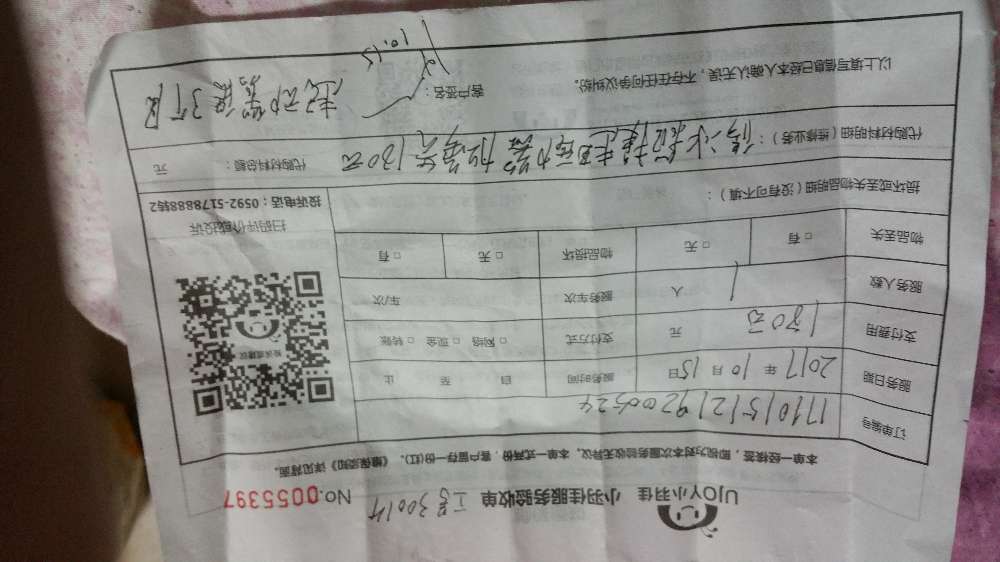 UJOY小羽佳 小羽佳服务验收单 工号30014 No.0055397
本单一经接签，即视为对本次服务验收无异议。本单一式两份，客户留存一份(红)，《维保须知》详见背面。
订单编号
服务日期 2017 年 10 月 15 日 服务时间 自 至 止
支付费用 180元 元 支付方式 □ 网络 □ 现金 □ 转账
服务人数 1 人 服务车次 车/次
物品丢失 □ 有 □ 无 物品损坏 □ 无 □ 有
投诉或建议
扫码评价或投诉
投诉电话：0592-5178888转2
损坏或丢失物品明细（没有可不填）：
代购材料明细（维修业务）：修冰箱 180元 代购材料总额： 元
以上填写信息已经本人确认无误，不存在任何争议纠纷。 客户签名： 10.15
起动器保3个月